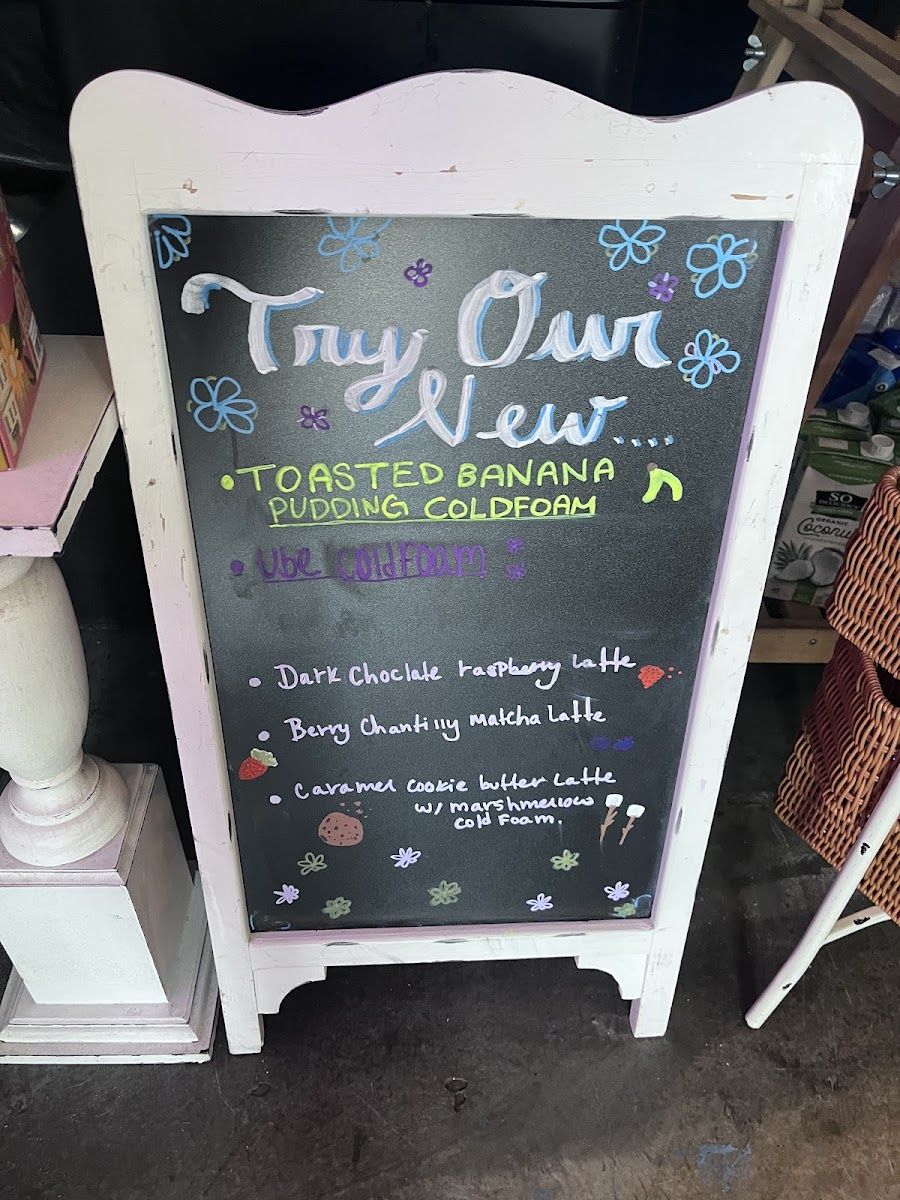 Try Our
New....
• TOASTED BANANA
PUDDING COLDFOAM
• Ube COldFoam
• Dark Choclate raspberry Latte
• Berry Chantilly Matcha Latte
• Caramel cookie butter Latte
w/ marshmellow
cold Foam.
SO
ORGANIC
Coconu